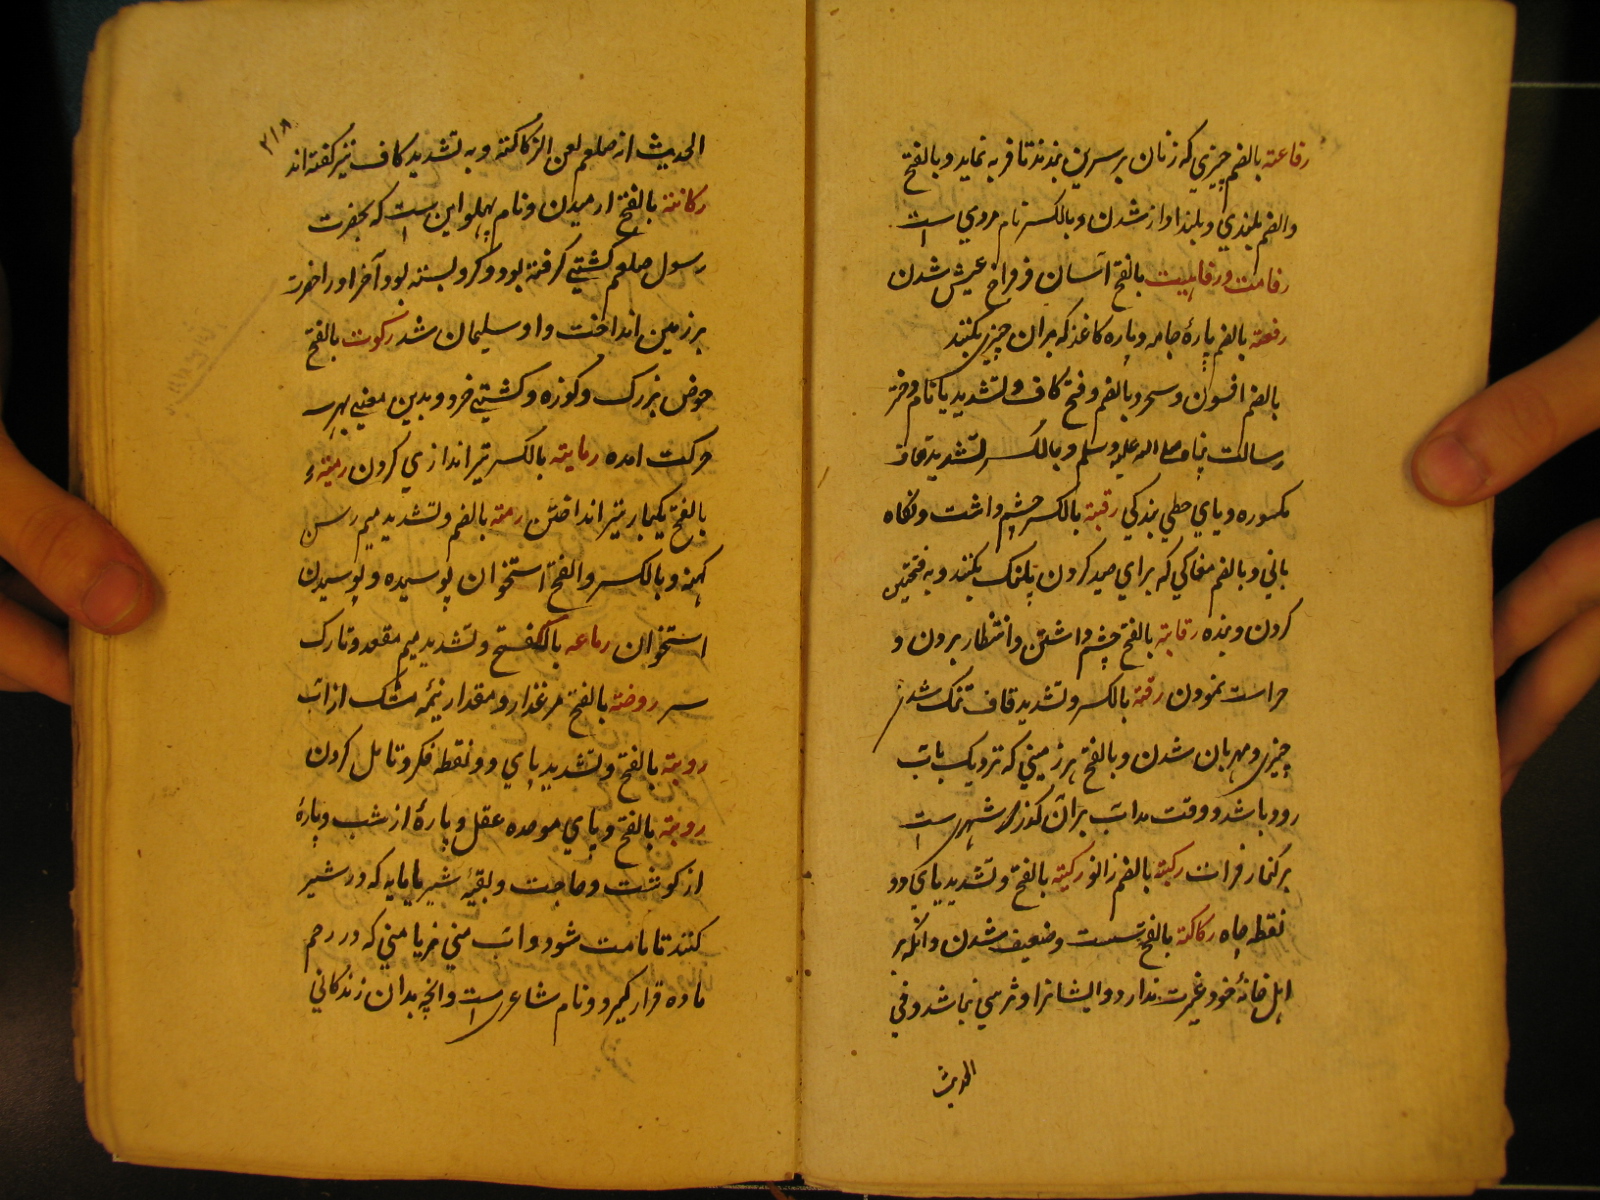 رفاعته بالضم چيزي كه زنان بر سرين بندند تا فربه نمايد و بالفتح
والضم بلندي و بلند اواز شدن و بالكسر نام مردي است
رفاهت و رفاهيت بالفتح آسان و فراخ عيش شدن
رقعته بالضم پارهٔ جامه و پاره كاغذ كه بران چيزي بكنند
بالضم افسون و سحر و بالضم و فتح كاف و تشديد يا نام دختر
رسالت پناه صلى الله عليه وسلم و بالكسر تشديد قاف
مكسوره و ياي حطي بندكي رقبته بالكسر چشم داشت و نكاه
باني و بالضم مغاكي كه براي صيد كردن پلنك بكنند و به فتحتين
كردن و بنده رقابته بالفتح چشم داشتن و انتظار بردن و
حراست نمودن رقته بالكسر و تشديد قاف تنك شدن
چيزي و مهربان شدن و بالفتح هر زميني كه نزديك باب
رود باشد و وقت مداب بران كذرد شهري است
بر كنار فرات ركبته بالضم زانو ركيته بالفتح و تشديد ياي دو
نقطه چاه ركاكته بالفتح سست و ضعيف شدن و انكه بر
اهل خانهٔ خود غيرت ندارد و ايشانرا او ترسي نباشد و في
الحديث
۲۱۸
الحديث انه صلعم لعن الركاكته و به تشديد كاف نيز كفته اند
ركانته بالفتح ارميدن و نام پهلو اين است كه بحضرت
رسول صلعم كشتي كرفته بود و كرو بسته بود آخر اورا حضرت
بر زمين انداخت و او سليمان شد ركوت بالفتح
حوض بزرك و كوزه و كشتي خرد و بدين معني بهر سه
حركت امده رمايته بالكسر تير اندازي كردن رميته
بالفتح يكبار تير انداختن رمته بالضم و تشديد ميم رسن
كهنه و بالكسر والفتح استخوان پوسيده و پوسيدن
استخوان رماعه بالفتح و تشديد ميم مقعد و تارك
سر روضته بالفتح مرغذار و مقدار نيمهٔ مشك از اب
رويته بالفتح و تشديد ياي دو نقطه فكر و تامل كردن
روبته بالفتح و باي موحده عقل و پارهٔ از شب و پارهٔ
از كوشت و حاجت و بقيهٔ شير يا مايه كه در شير
كنند تا ماست شود و اب مني نر يا مني كه در رحم
ماده قرار كيرد و نام شاعري است و انچه بدان زندكاني